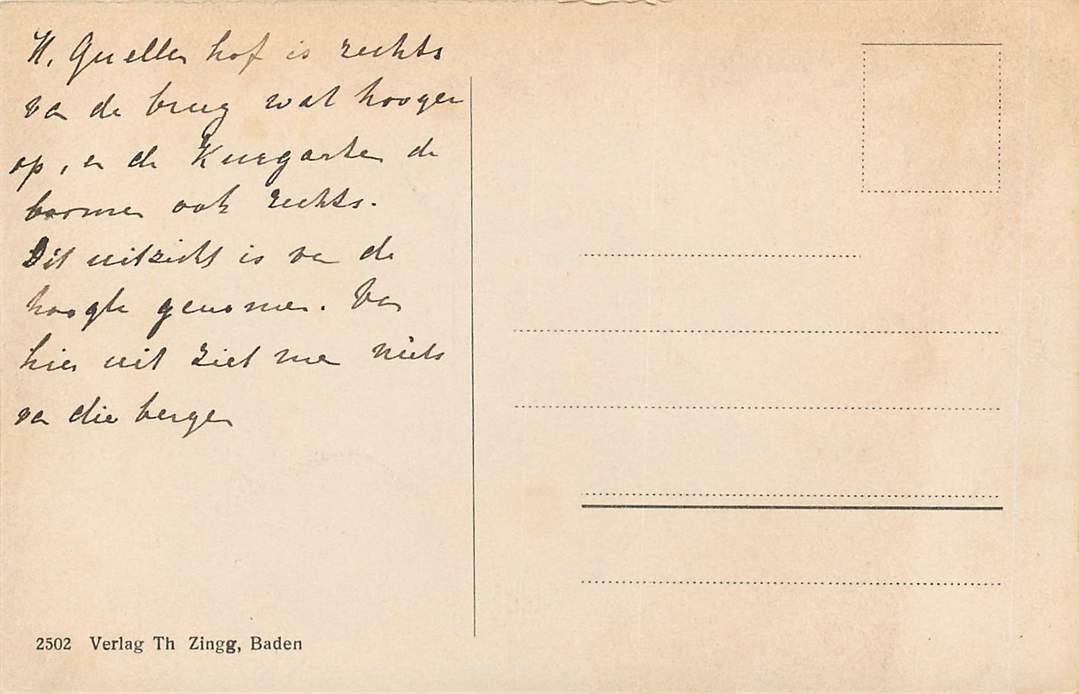 H. Quellenhof is rechts
van de brug wat hooger
op, en de Kurgarten de
boomen ook rechts.
Dit uitzicht is van de
hoogte genomen. Van
hier uit ziet men niets
van die bergen
2502 Verlag Th Zingg, Baden